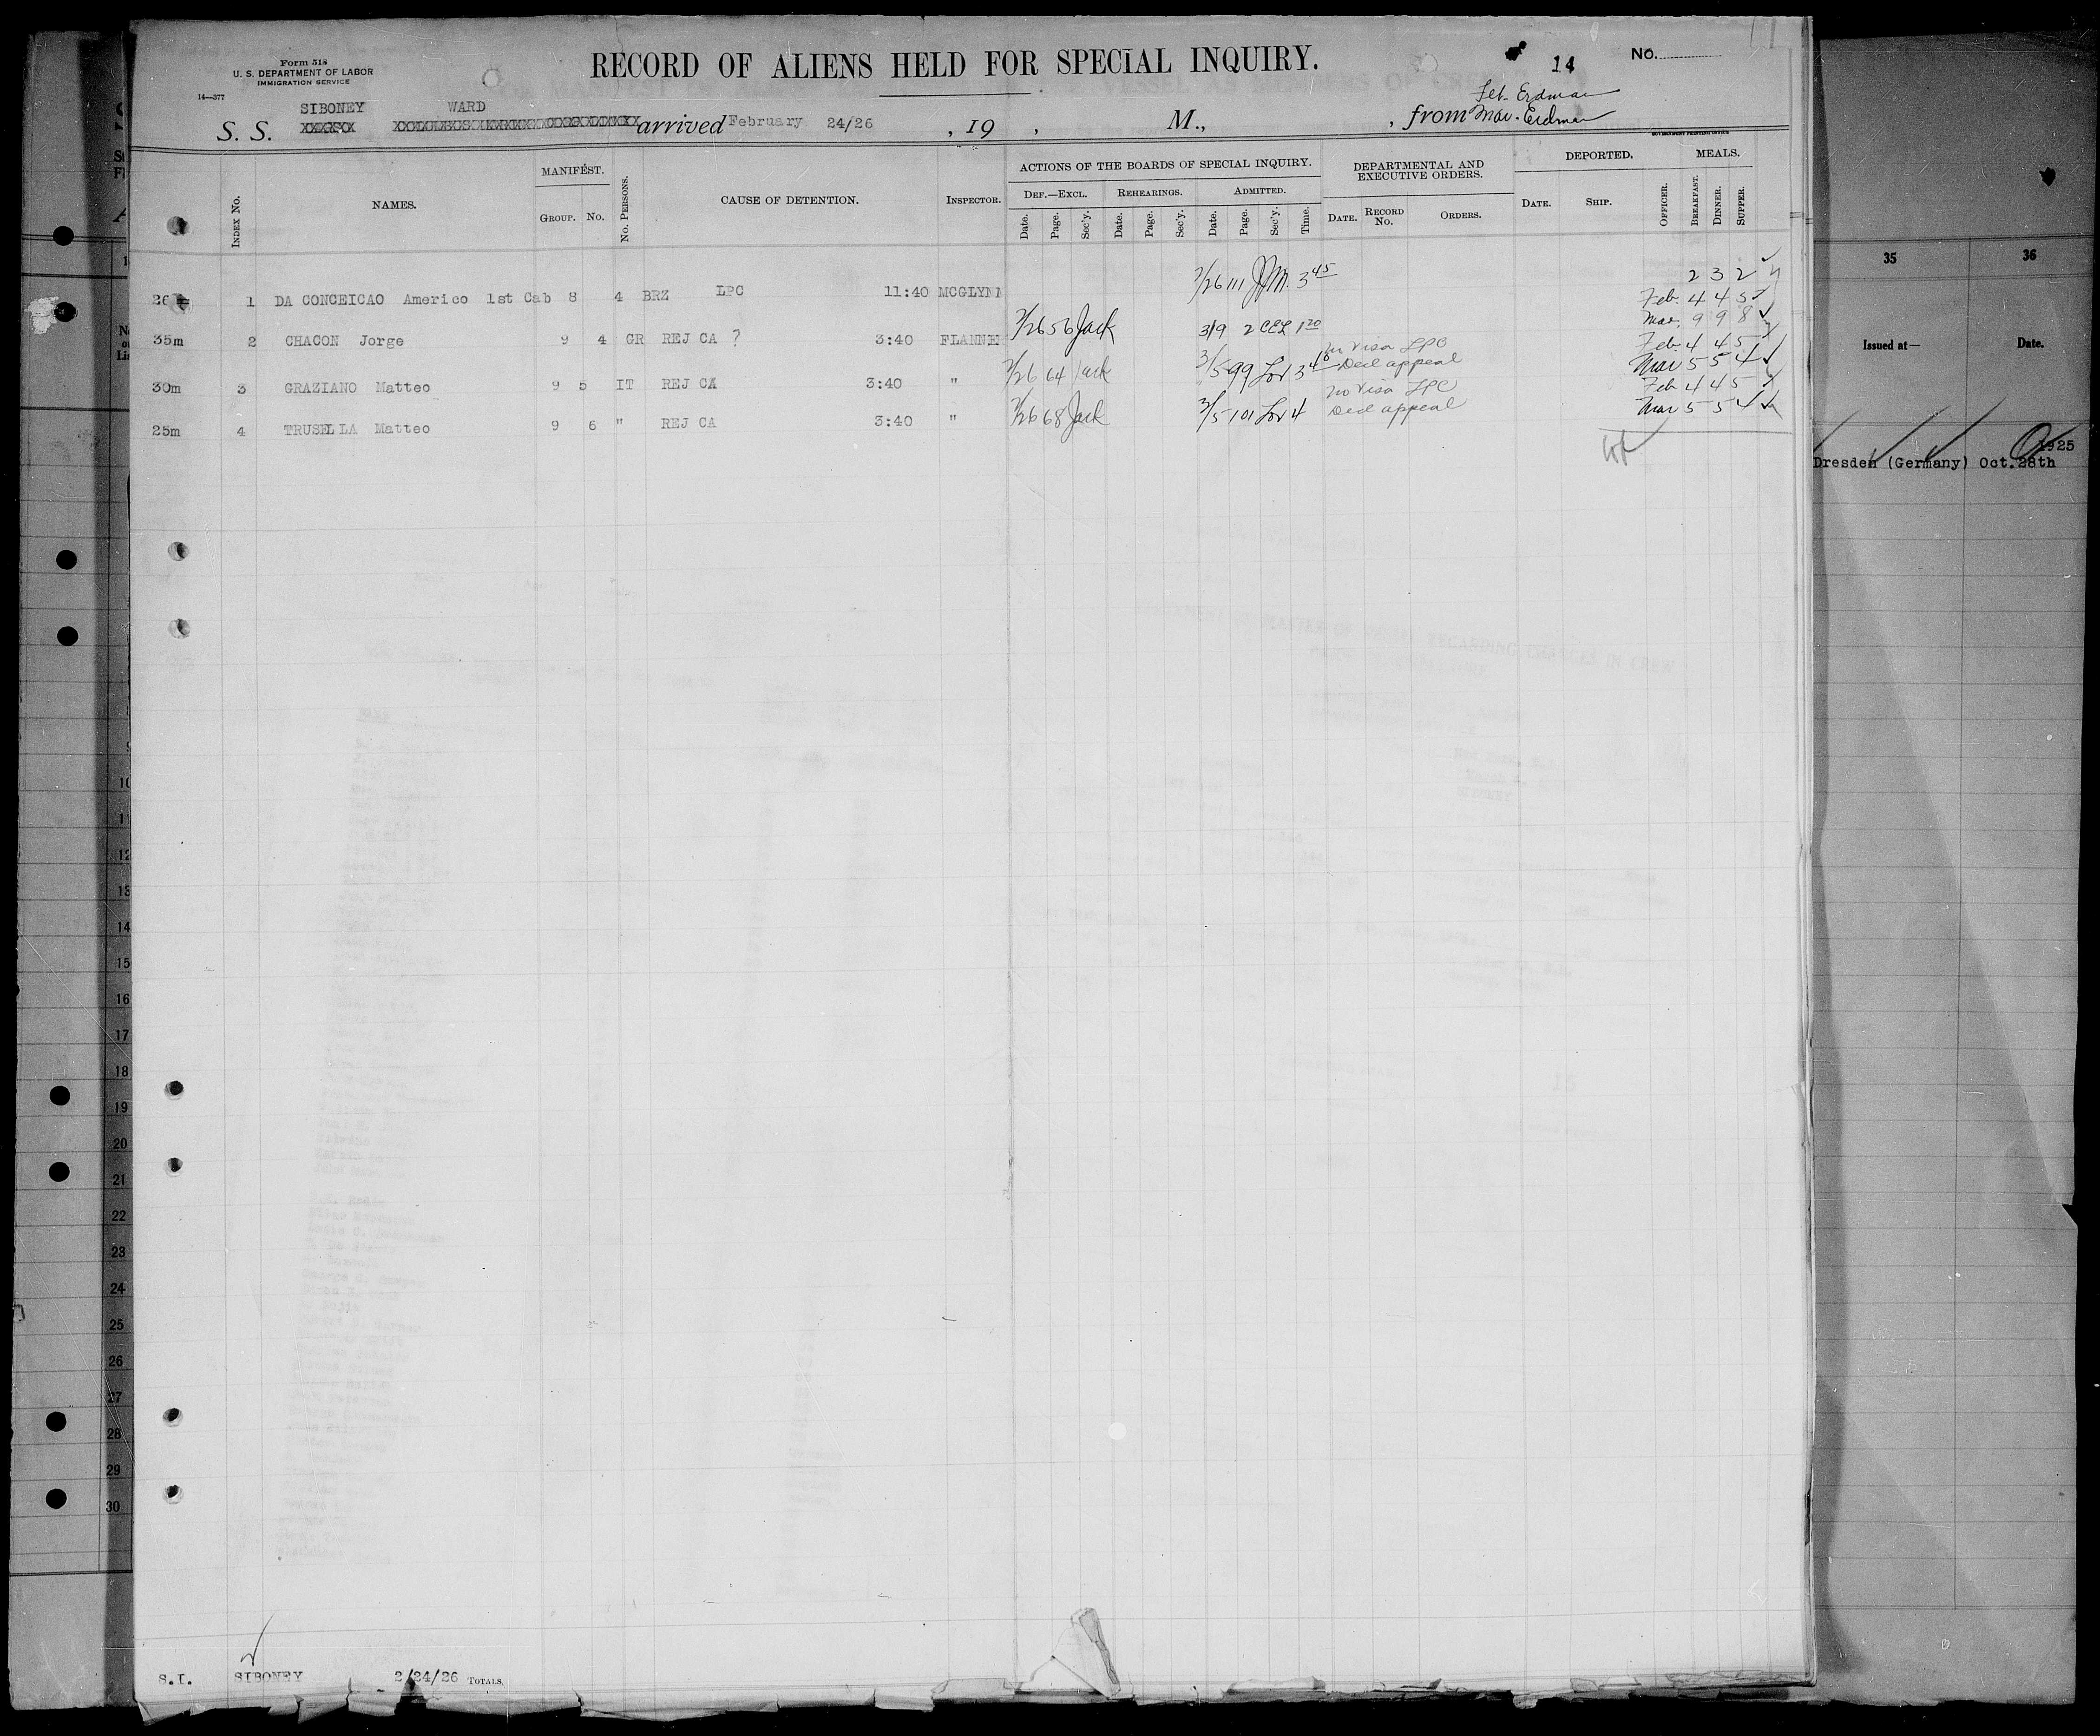 Form 518
U. S. DEPARTMENT OF LABOR
IMMIGRATION SERVICE
14—377
RECORD OF ALIENS HELD FOR SPECIAL INQUIRY.
14
No.
Feb. Erdman
SIBONEY WARD
S. S. arrived February 24/26 , 19 , M., , from Mar. Erdman
GOVERNMENT PRINTING OFFICE
INDEX NO.
NAMES.
MANIFEST.
GROUP. NO.
NO. PERSONS.
CAUSE OF DETENTION.
INSPECTOR.
ACTIONS OF THE BOARDS OF SPECIAL INQUIRY.
DEF.—EXCL. REHEARINGS. ADMITTED.
Date. Page. Sec'y. Date. Page. Sec'y. Date. Page. Sec'y. Time.
DEPARTMENTAL AND
EXECUTIVE ORDERS.
DATE. RECORD NO. ORDERS.
DEPORTED.
DATE. SHIP.
OFFICER.
MEALS.
BREAKFAST. DINNER. SUPPER.
26 1 DA CONCEICAO Americo 1st Cab 8 4 BRZ LPC 11:40 MCGLYNN 2/26 111 3 45 2 3 2
Feb. 4 4 5
35m 2 CHACON Jorge 9 4 GR REJ CA ? 3:40 FLANNE 2/26 56 Jack 3/9 2 CEL 1 20 Mar. 9 9 8
no visa LPC Feb. 4 4 5
30m 3 GRAZIANO Matteo 9 5 IT REJ CA 3:40 " 2/26 64 Jack 3/5 99 3 40 Decd appeal Mar 5 5 4
no visa LPC Feb 4 4 5
25m 4 TRUSELLA Matteo 9 6 " REJ CA 3:40 " 2/26 68 Jack 3/5 101 4 Decd appeal Mar 5 5 4
35 36
Issued at— Date.
1925
Dresden (Germany) Oct.28th
10
11
12
13
14
15
16
17
18
19
20
21
22
23
24
25
26
27
28
29
30
S.I. SIBONEY 2/24/26 TOTALS